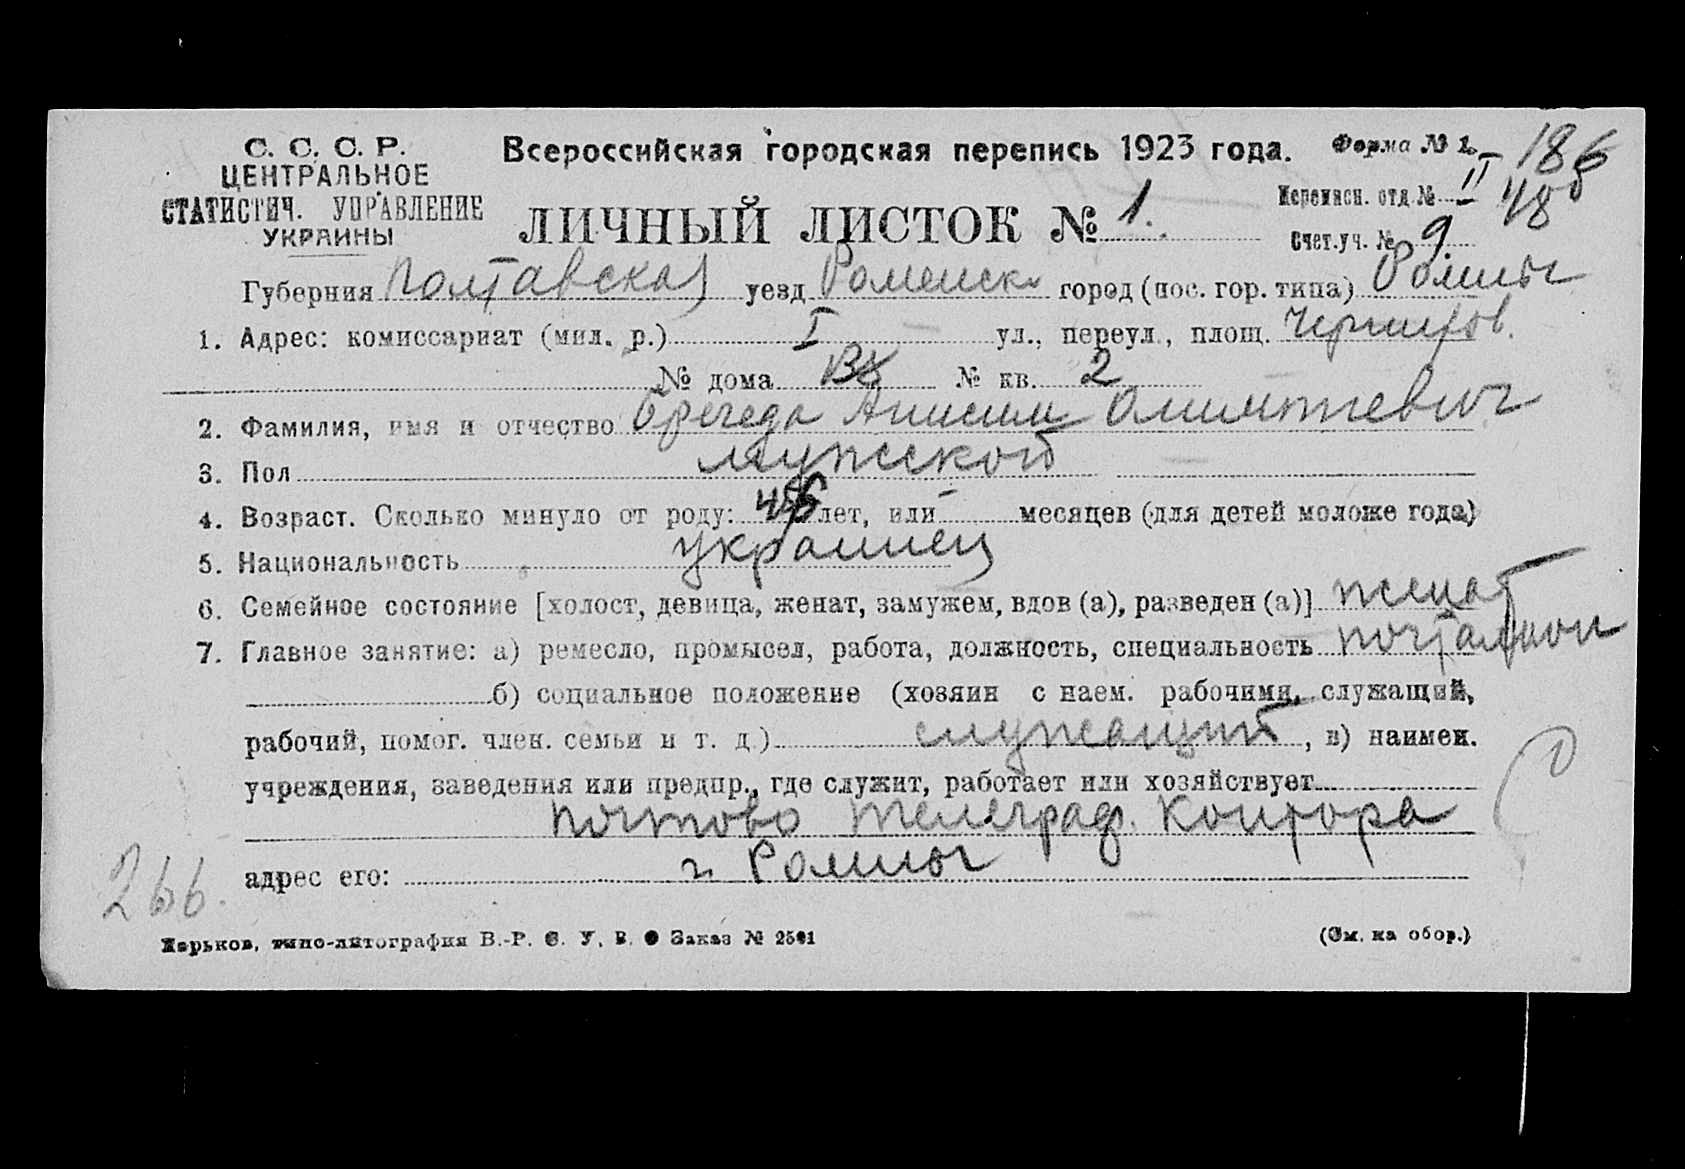 С. С. С. Р.
ЦЕНТРАЛЬНОЕ
СТАТИСТИЧ. УПРАВЛЕНИЕ
УКРАИНЫ
Всероссийская городская перепись 1923 года.
Форма № 1.
186
ЛИЧНЫЙ ЛИСТОК № 1.
Переписн. отд. № II
Счет. уч. № 9
Губерния Полтавская уезд Роменск. город (пос. гор. типа) Ромны
1. Адрес: комиссариат (мил. р.) I ул., переул., площ. Чернигов.
№ дома № кв. 2
2. Фамилия, имя и отчество Анисим
3. Пол мужской
4. Возраст. Сколько минуло от роду: лет, или - месяцев (для детей моложе года)
5. Национальность украинец
6. Семейное состояние [холост, девица, женат, замужем, вдов (а), разведен (а)] женат
7. Главное занятие: а) ремесло, промысел, работа, должность, специальность почталион
б) социальное положение (хозяин с наем. рабочими, служащий,
рабочий, помог. член. семьи и т. д.) служащий, в) наимен.
учреждения, заведения или предпр., где служит, работает или хозяйствует
почтово телеграф. контора
адрес его: г. Ромны
266.
Харьков, типо-литография В.-Р. С. У. В. Заказ № 2501
(См. на обор.)